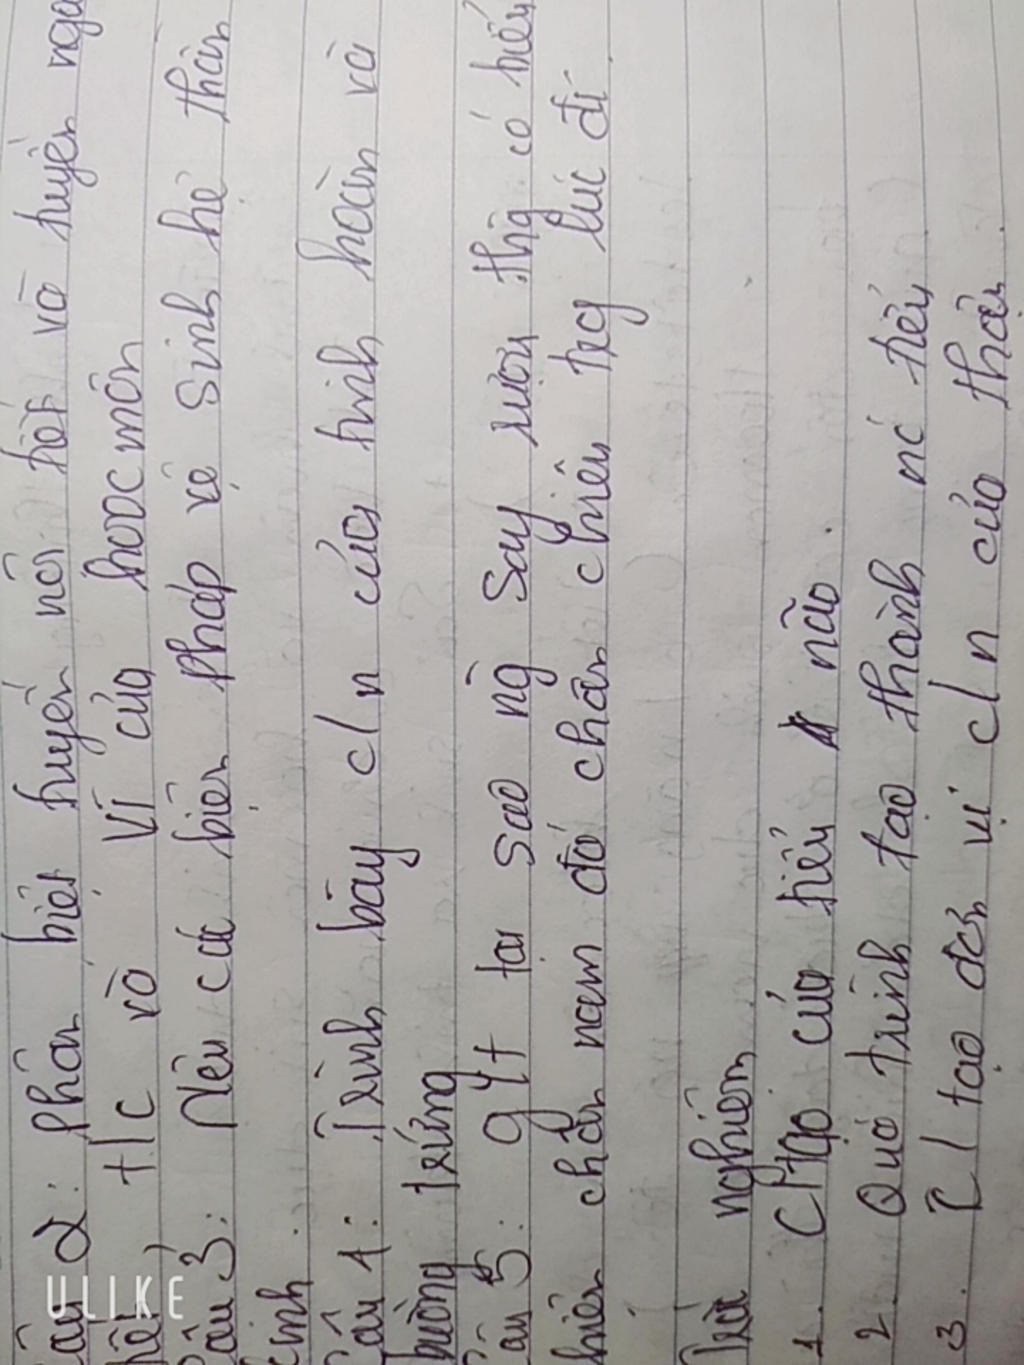 Câu 2: Phân biệt tuyến nội tiết và tuyến ngoại
tiết, t/c và VT của hoocmôn
Câu 3: Nêu các biện pháp vệ sinh hệ thần
kinh.
Câu 4: Trình bày c/n của tinh hoàn và
buồng trứng
Câu 5: g yt tại sao ng say rượu thg có biểu
hiện chân nam đá chân chiêu trog lúc đi.
Trắc nghiệm
1. C/tạo của tiểu não.
2. Quá trình tạo thành nc tiểu
3. C/tạo đơn vị c/n của thận.
ULIKE